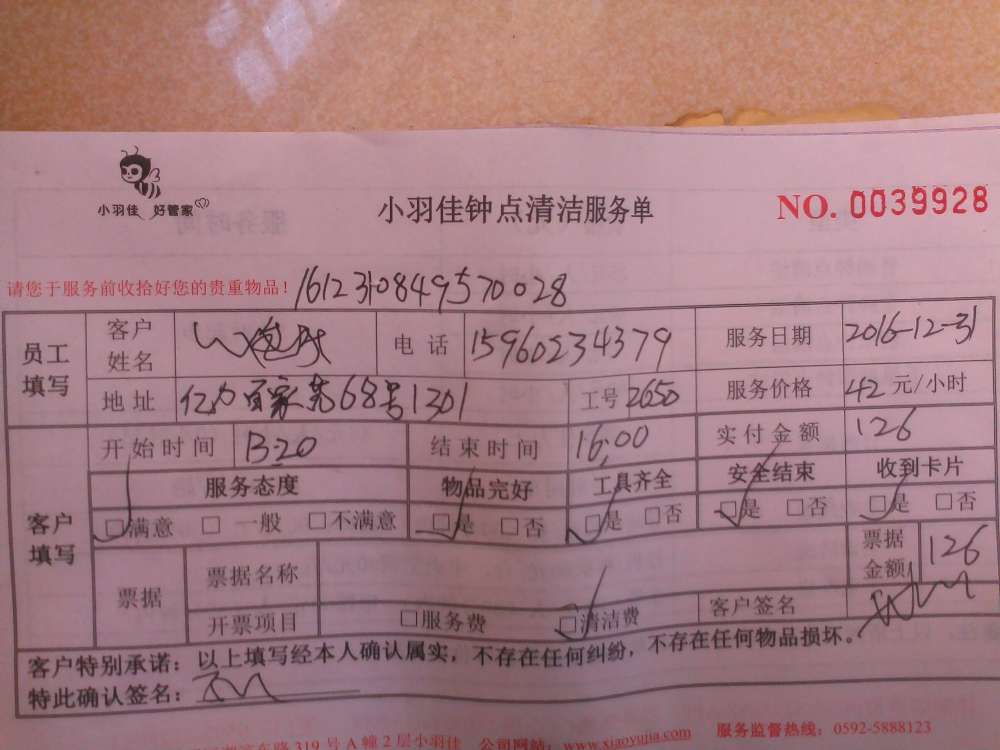 小羽佳 好管家
小羽佳钟点清洁服务单
NO. 0039928
请您于服务前收拾好您的贵重物品！ 1612310849570028
员工填写 客户姓名 电话 15960234379 服务日期 2016-12-31
地址 亿力百家苑68号1301 工号 2650 服务价格 42 元/小时
客户填写 开始时间 13:20 结束时间 16:00 实付金额 126
服务态度 物品完好 工具齐全 安全结束 收到卡片
□满意 □一般 □不满意 □是 □否 □是 □否 □是 □否 □是 □否
票据 票据名称 票据金额 126
开票项目 □服务费 □清洁费 客户签名
客户特别承诺：以上填写经本人确认属实，不存在任何纠纷，不存在任何物品损坏。
特此确认签名：
服务监督热线：0592-5888123
东路319号A幢2层小羽佳 公司网站：www.xiaoyujia.com